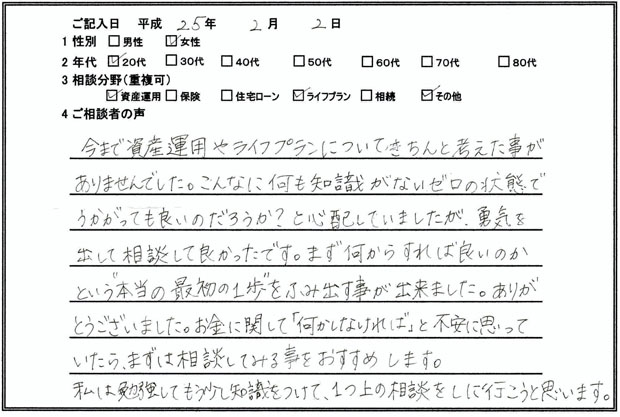 ご記入日 平成 25年 2月 2日
1 性別 □男性 ☑女性
2 年代 ☑20代 □30代 □40代 □50代 □60代 □70代 □80代
3 相談分野(重複可)
☑資産運用 □保険 □住宅ローン ☑ライフプラン □相続 ☑その他
4 ご相談者の声
今まで資産運用やライフプランについてきちんと考えた事が
ありませんでした。こんなに何も知識がないゼロの状態で
うかがっても良いのだろうか?と心配していましたが、勇気を
出して相談して良かったです。まず何からすれば良いのか
という"本当の最初の1歩"をふみ出す事が出来ました。ありが
とうございました。お金に関して「何かしなければ」と不安に思って
いたら、まずは相談してみる事をおすすめします。
私は勉強してもう少し知識をつけて、1つ上の相談をしに行こうと思います。